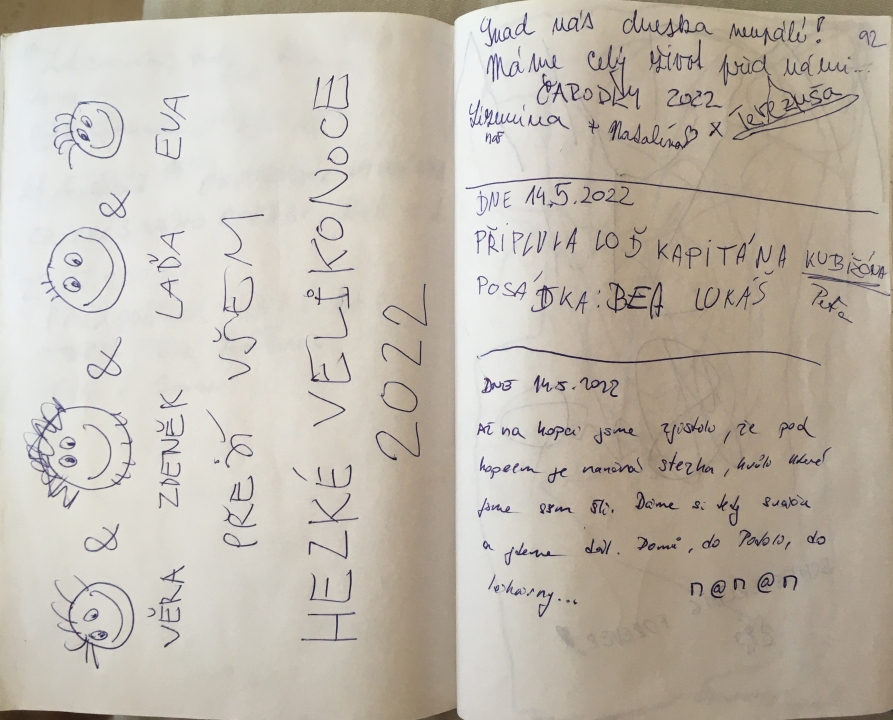 & & &
VĚRA ZDENĚK LAĎA EVA
PŘEJÍ VŠEM
HEZKÉ VELIKONOCE
2022
92
Snad nás dneska neupálí!
Máme celý život před námi...
ČARODĚJ 2022
+ Natalína x Terezuša
DNE 14.5.2022
PŘIPLULA LOĎ KAPITÁNA KUBIŠÓNA
POSÁDKA: BEA LUKÁŠ Peťa
DNE 14.5.2022
Až na kopci jsme zjistili, že pod
kopcem je naučná stezka, kvůli které
jsme sem šli. Dáme si tedy svačinu
a jdeme dál. Domů, do Podolí, do
lékárny... n@n@n